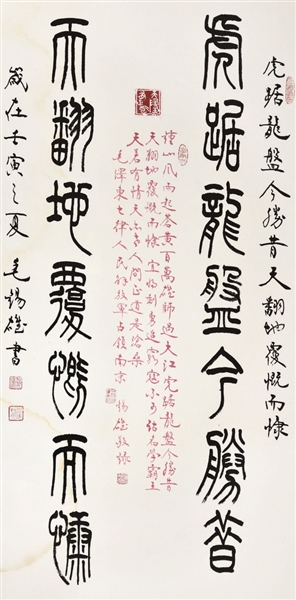 虎踞龍盤今勝昔天翻地覆慨而慷
虎踞龍盤今勝昔
鍾山風雨起蒼黃百萬雄師過大江虎踞龍盤今勝昔
天翻地覆慨而慷宜將剩勇追窮寇不可沽名學霸王
天若有情天亦老人間正道是滄桑
毛澤東七律人民解放軍占領南京 錫雄敬錄
天翻地覆慨而慷
歲在壬寅之夏 毛錫雄書